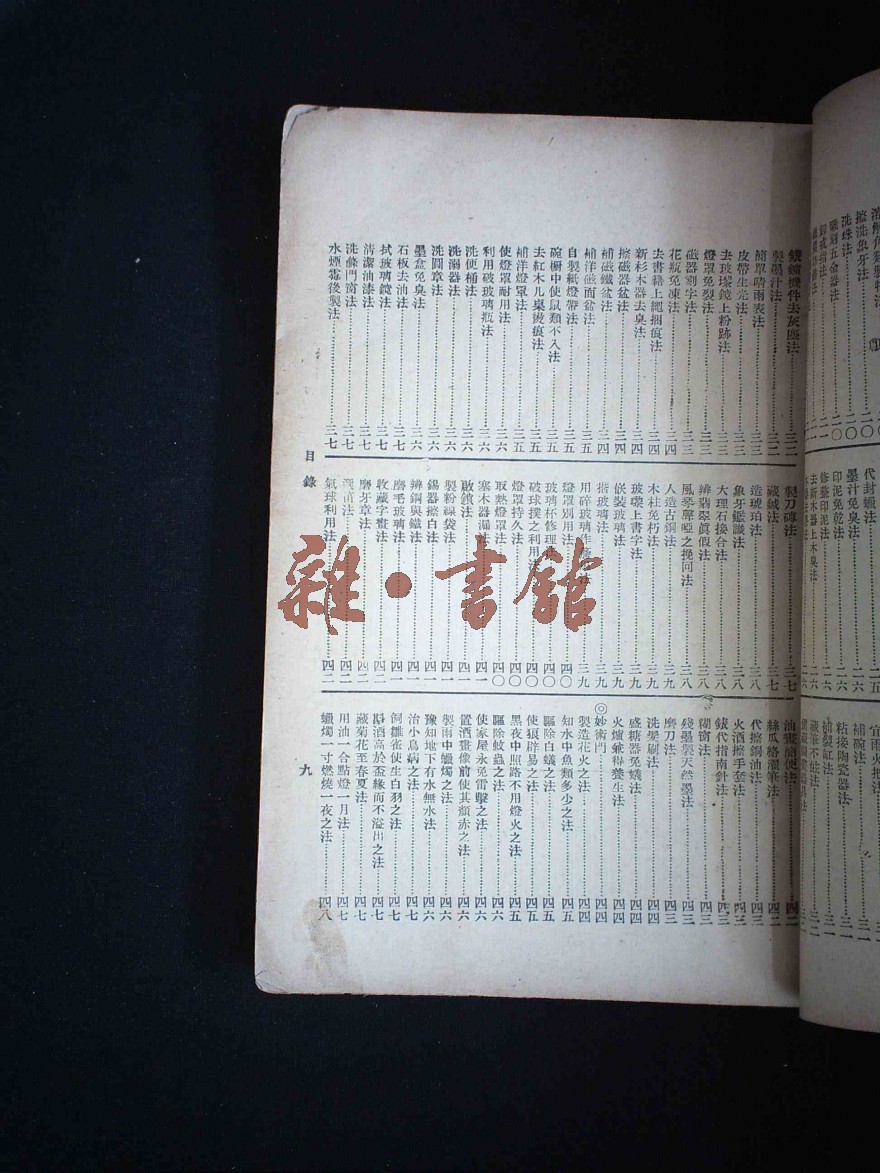 鐘錶機件去灰塵法……三二
製墨汁法……三二
簡單晴雨表法……三三
皮帶生光法……三三
去玻璃鏡上粉跡法……三三
燈罩免裂法……三三
磁器刻字法……三三
花瓶免凍法……三四
去書籍上繩捆痕法……三四
新杉木器去臭法……三四
擦磁器盆法……三四
補磁鐵盆法……三四
補洋磁面盆法……三五
自製紙燈帶法……三五
碗櫥中使鼠類不入法……三五
去紅木几桌燙痕法……三五
補洋燈罩法……三五
使燈罩耐用法……三六
利用破玻璃瓶法……三六
洗便桶法……三六
洗溺器法……三六
洗圖章法……三六
墨盒免臭法……三六
石板去油法……三七
拭玻璃鏡法……三七
清潔油漆法……三七
洗滌門窗法……三七
水煙霉後製法……三七
製刀磚法……三七
藏鉞法……三八
造琥珀法……三八
象牙鑑識法……三八
大理石接合法……三八
辨翡翠真假法……三八
風琴聲啞之挽回法……三八
人造古銅法……三九
木柱免朽法……三九
玻璃上書字法……三九
嵌裝玻璃法……三九
揩玻璃法……三九
用碎玻璃作 法……三九
燈罩別用法……四〇
玻璃杯修理法……四〇
破球撲之利用法……四〇
燈罩持久法……四〇
取熱燈罩法……四〇
塞木器漏法……四一
啟鎖法……四一
製粉線袋法……四一
錫器擦白法……四一
辨鋼與鐵法……四一
磨毛玻璃法……四一
收藏字畫法……四二
磨牙章法……四二
氣球利用法……四二
油畫簡便法……四二
絲瓜絡濯筆法……四二
代擦銅油法……四三
錶代指南針法……四三
火酒擦手套法……四三
糊窗法……四三
殘墨製天然墨法……四三
磨刀法……四三
洗髮刷法……四四
盛糖器免蟻法……四四
火爐兼得養生法……四四
◎妙術門……四四
製造花火之法……四四
知水中魚類多少之法……四五
驅除白蟻之法……四五
使狼辟易之法……四五
黑夜中照路不用燈火之法……四五
驅除蚊蟲之法……四六
使家屋永免雷擊之法……四六
置酒畫像前使其顏赤之法……四六
製雨中蠟燭之法……四六
豫知地下有水無水法……四六
治小鳥病之法……四七
飼雛雀使生白羽之法……四七
斟酒高於盃緣而不溢出之法……四七
藏菊花至春夏法……四七
用油一合點燈一月法……四七
蠟燭一寸燃燒一夜之法……四八
目錄
九
擦洗象牙法
洗珠法
代封蠟法
墨汁免臭法
印泥免乾法
修整印泥法
去新木器上木臭法
補碗法
粘接陶瓷器法
補裂缸法
藏筆不蛀法
雜·書館